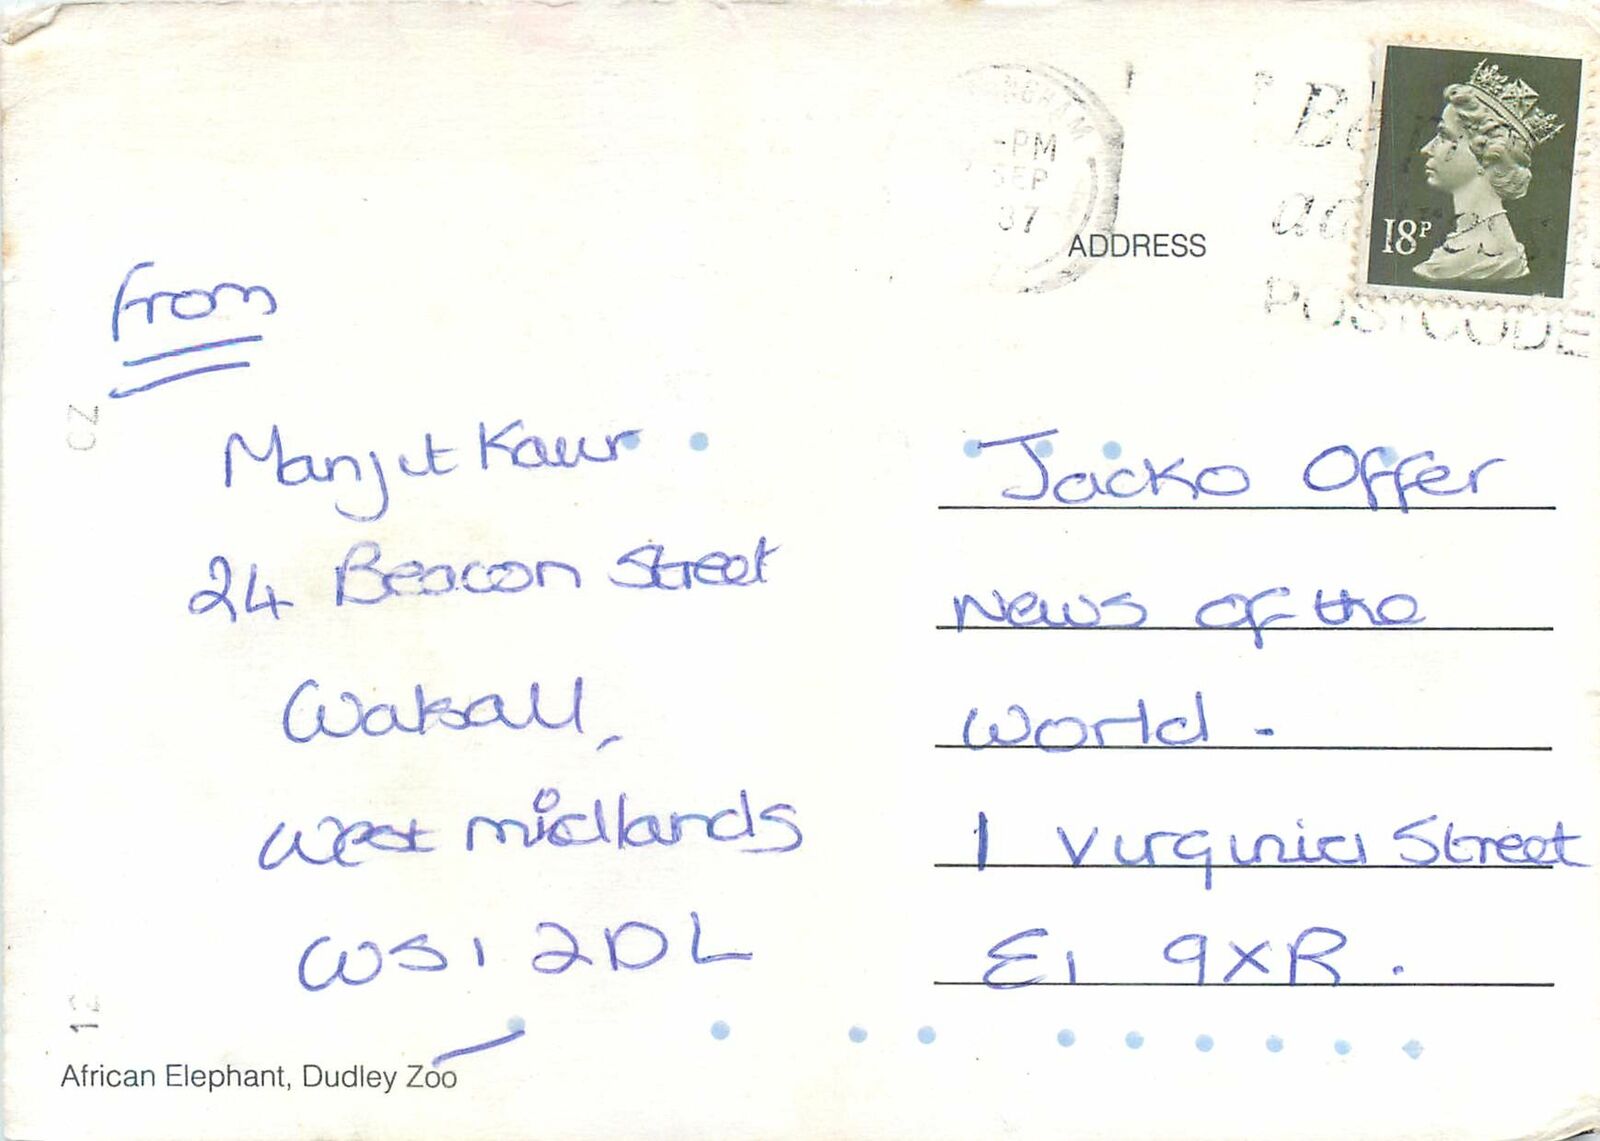 -PM
SEP
ADDRESS
18P
POSTCODE
From
Manjit Kaur
24 Beacon Street
Walsall,
West midlands
WS1 2DL
Jacko Offer
News of the
World -
1 Virginia Street
E1 9XR.
African Elephant, Dudley Zoo